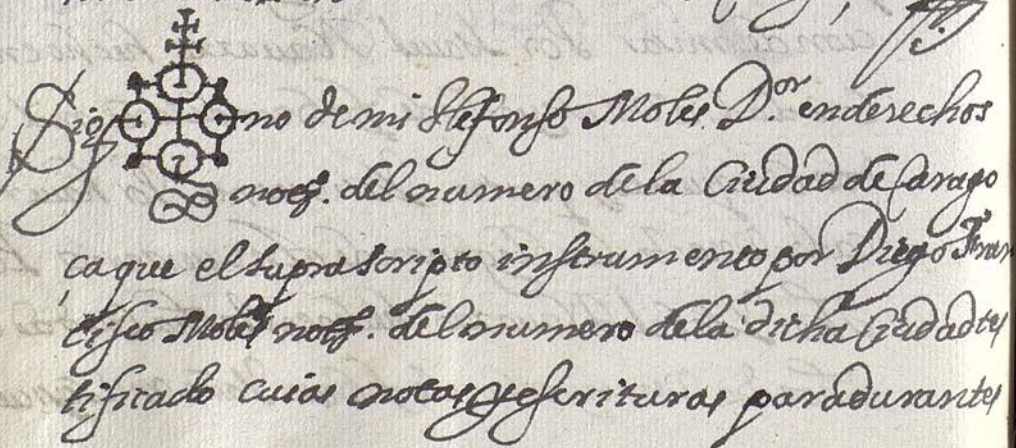 Sig no de mi Ilefonso Moles D.or en derechos
not. del numero de la Ciudad de Çarago
ça que el supra scripto instrumento por Diego Fran
cisco Moles not. del numero de la dicha Ciudad tes
tificado cuias notas y escrituras para durantes